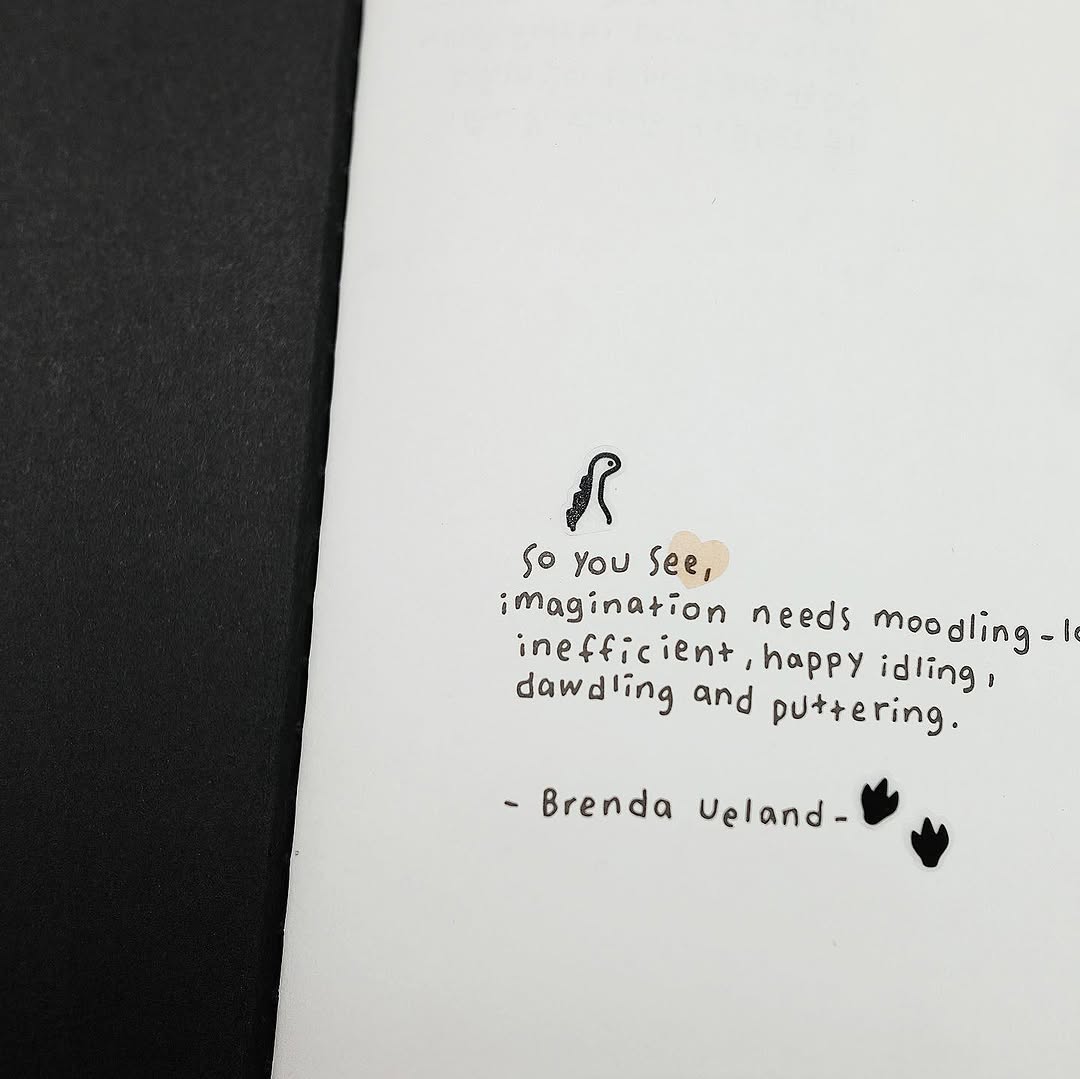 So you see,
imagination needs moodling - lo
inefficient, happy idling,
dawdling and puttering.
- Brenda Ueland -